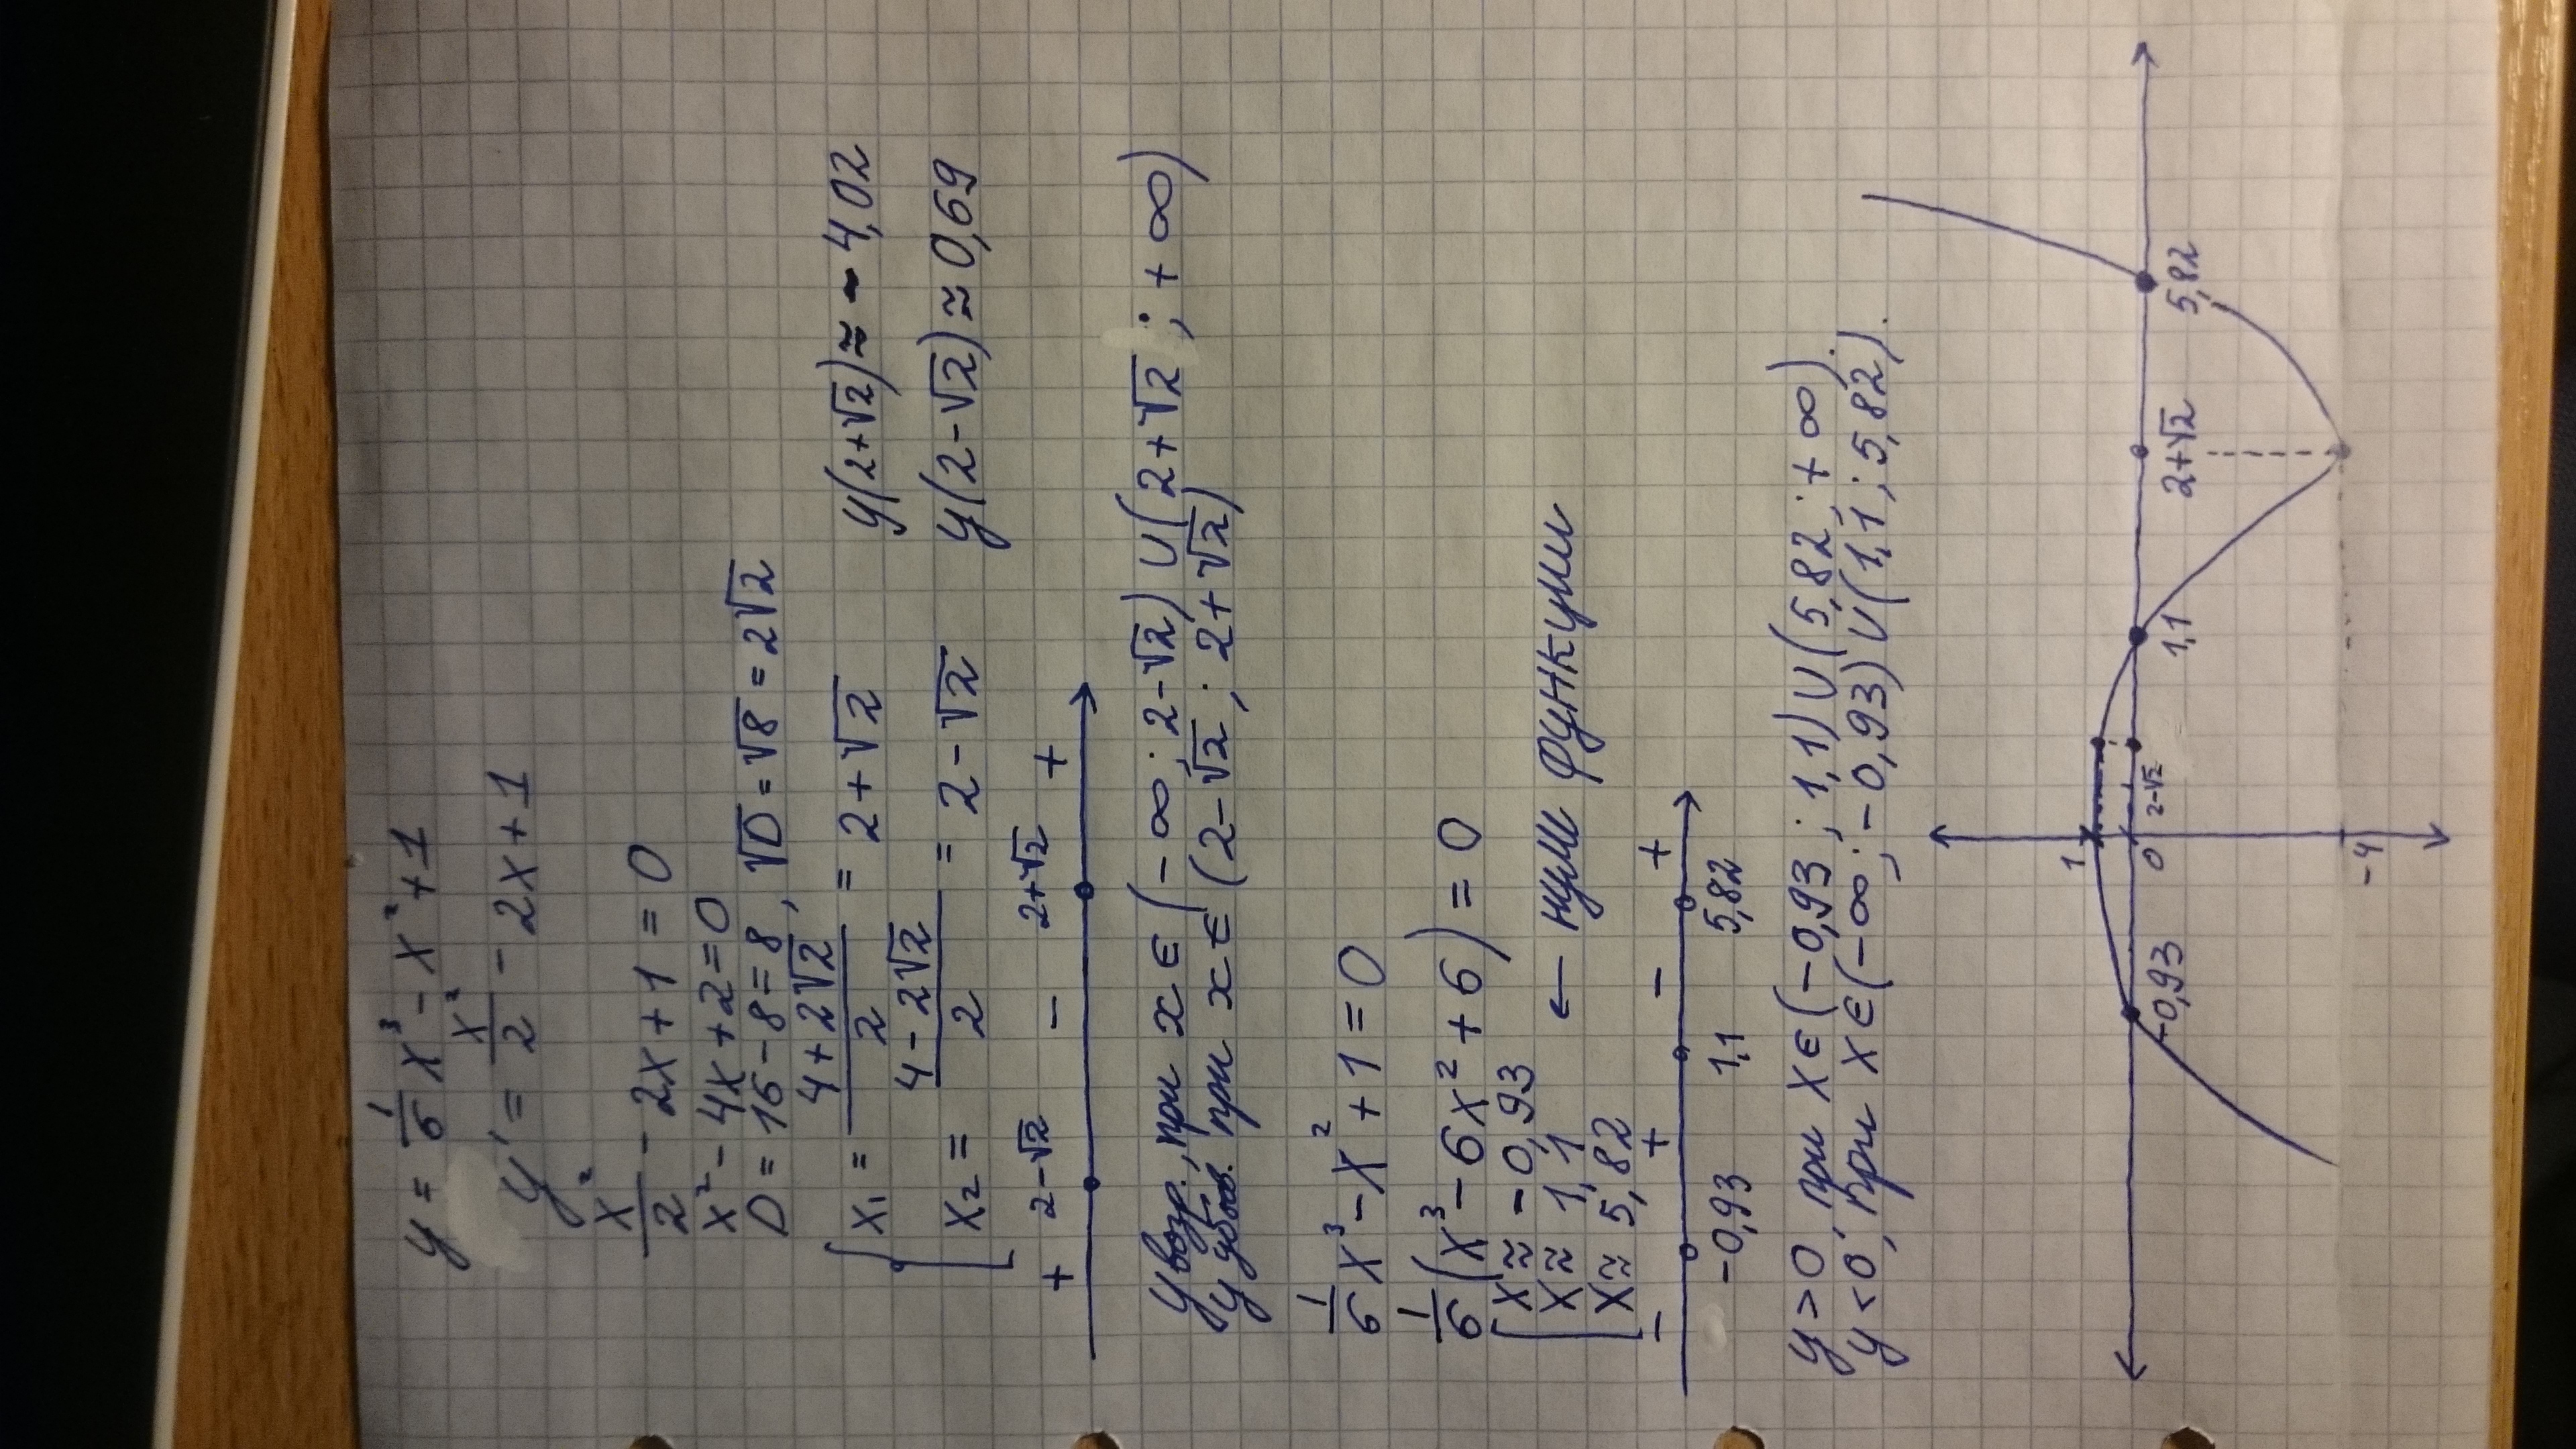 y = 1/6 x³ - x² + 1
y' = x²/2 - 2x + 1
x²/2 - 2x + 1 = 0
x² - 4x + 2 = 0
D = 16 - 8 = 8, √D = √8 = 2√2
x₁ = (4 + 2√2)/2 = 2 + √2 y(2+√2) ≈ -4,02
x₂ = (4 - 2√2)/2 = 2 - √2 y(2-√2) ≈ 0,69
+ 2-√2 - 2+√2 +
y возр., при x ∈ (-∞; 2-√2) ∪ (2+√2; +∞)
y убыв. при x ∈ (2-√2; 2+√2)
1/6 x³ - x² + 1 = 0
1/6 (x³ - 6x² + 6) = 0
x ≈ -0,93
x ≈ 1,1 ← нули функции
x ≈ 5,82
- + - +
-0,93 1,1 5,82
y > 0, при x ∈ (-0,93; 1,1) ∪ (5,82; +∞)
y < 0, при x ∈ (-∞; -0,93) ∪ (1,1; 5,82).
1
-0,93 0 2-√2 1,1 2+√2 5,82
-4